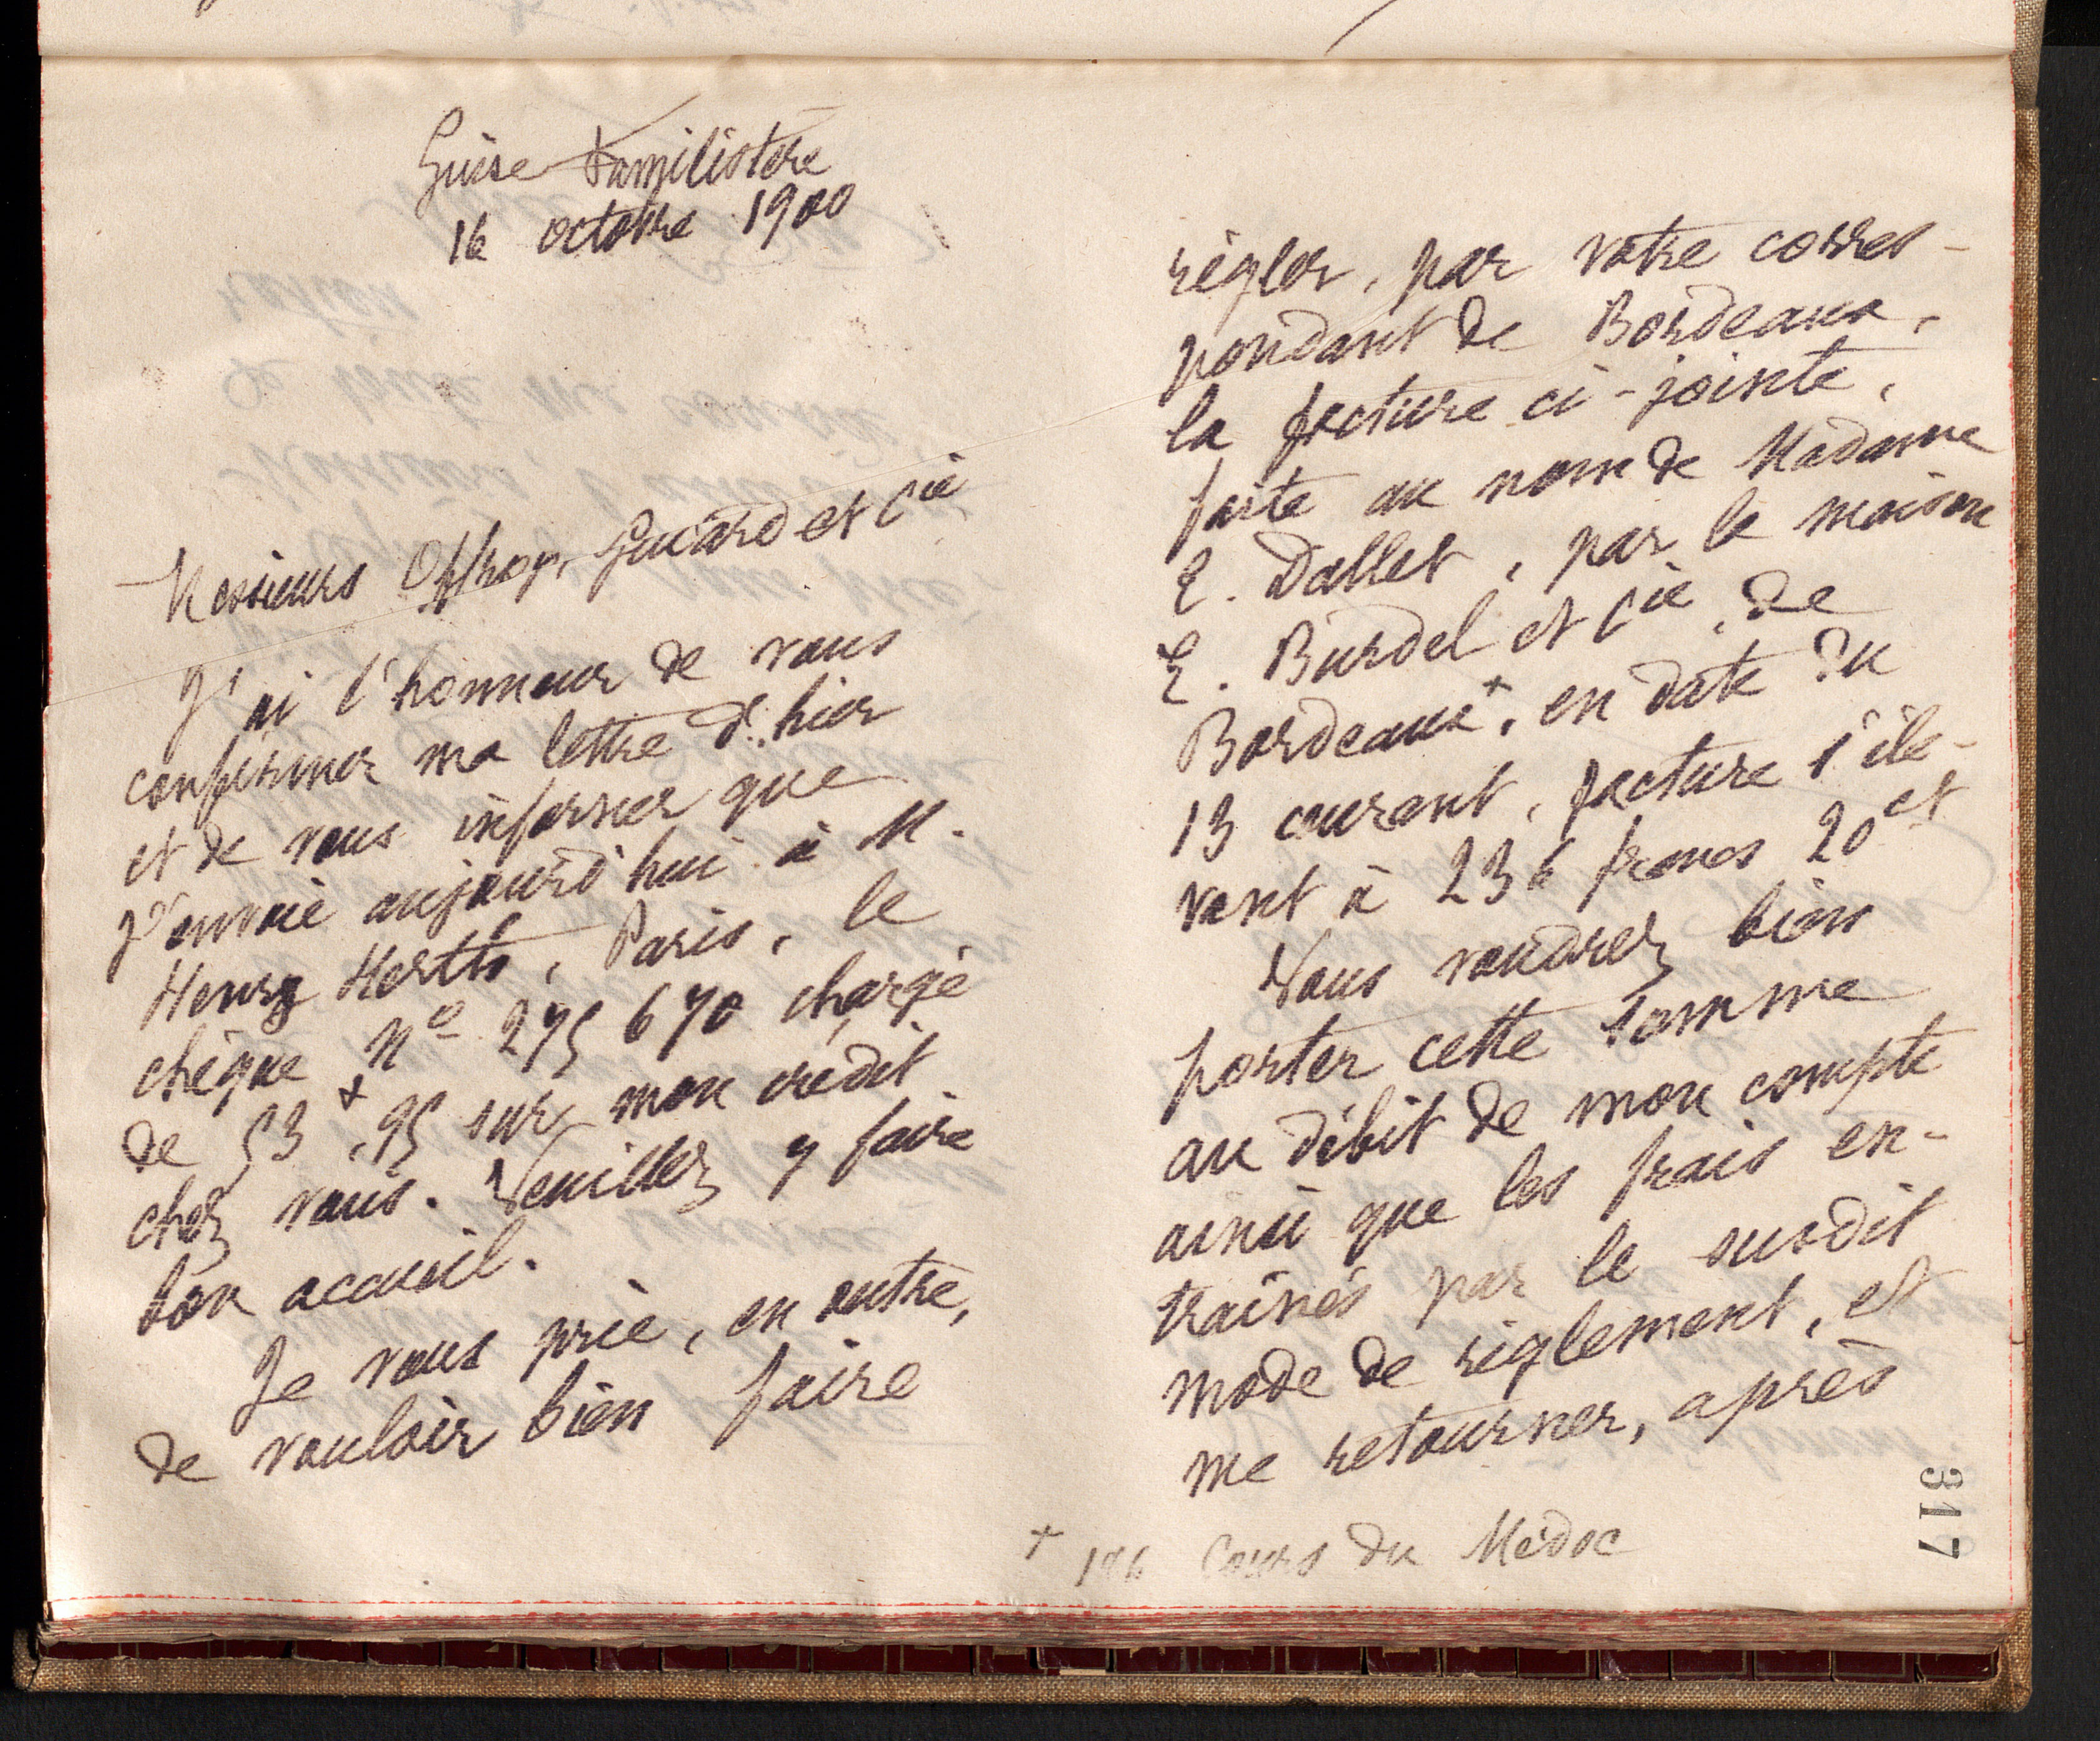 Guise Familistère
16 octobre 1900
Messieurs Offroy, Guiard et Cie
J'ai l'honneur de vous
confirmer ma lettre d'hier
et de vous informer que
j'envoie aujourd'hui à M.
Henry Merth, Paris, le
chèque No 275 670 chargé
de 53 f, 95 sur mon crédit
chez vous. Veuillez y faire
bon accueil.
Je vous prie, en outre,
de vouloir bien faire
régler, par votre corres-
pondant de Bordeaux,
la facture ci-jointe,
faite au nom de Madame
E. Dallet, par la maison
E. Burdel et Cie, de
Bordeaux +, en date du
13 courant, facture s'éle-
vant à 236 francs 20 ct
Vous voudrez bien
porter cette somme
au débit de mon compte
ainsi que les frais en-
traînés par le susdit
mode de règlement, et
me retourner, après
+ Cours du Médoc
317